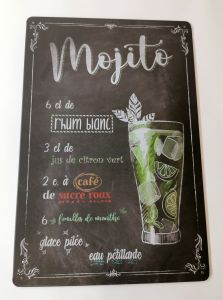 Mojito
6 cl de
rhum blanc
3 cl de
jus de citron vert
2 c. à café
de sucre roux
6 feuilles de menthe
glace pilée
eau pétillante